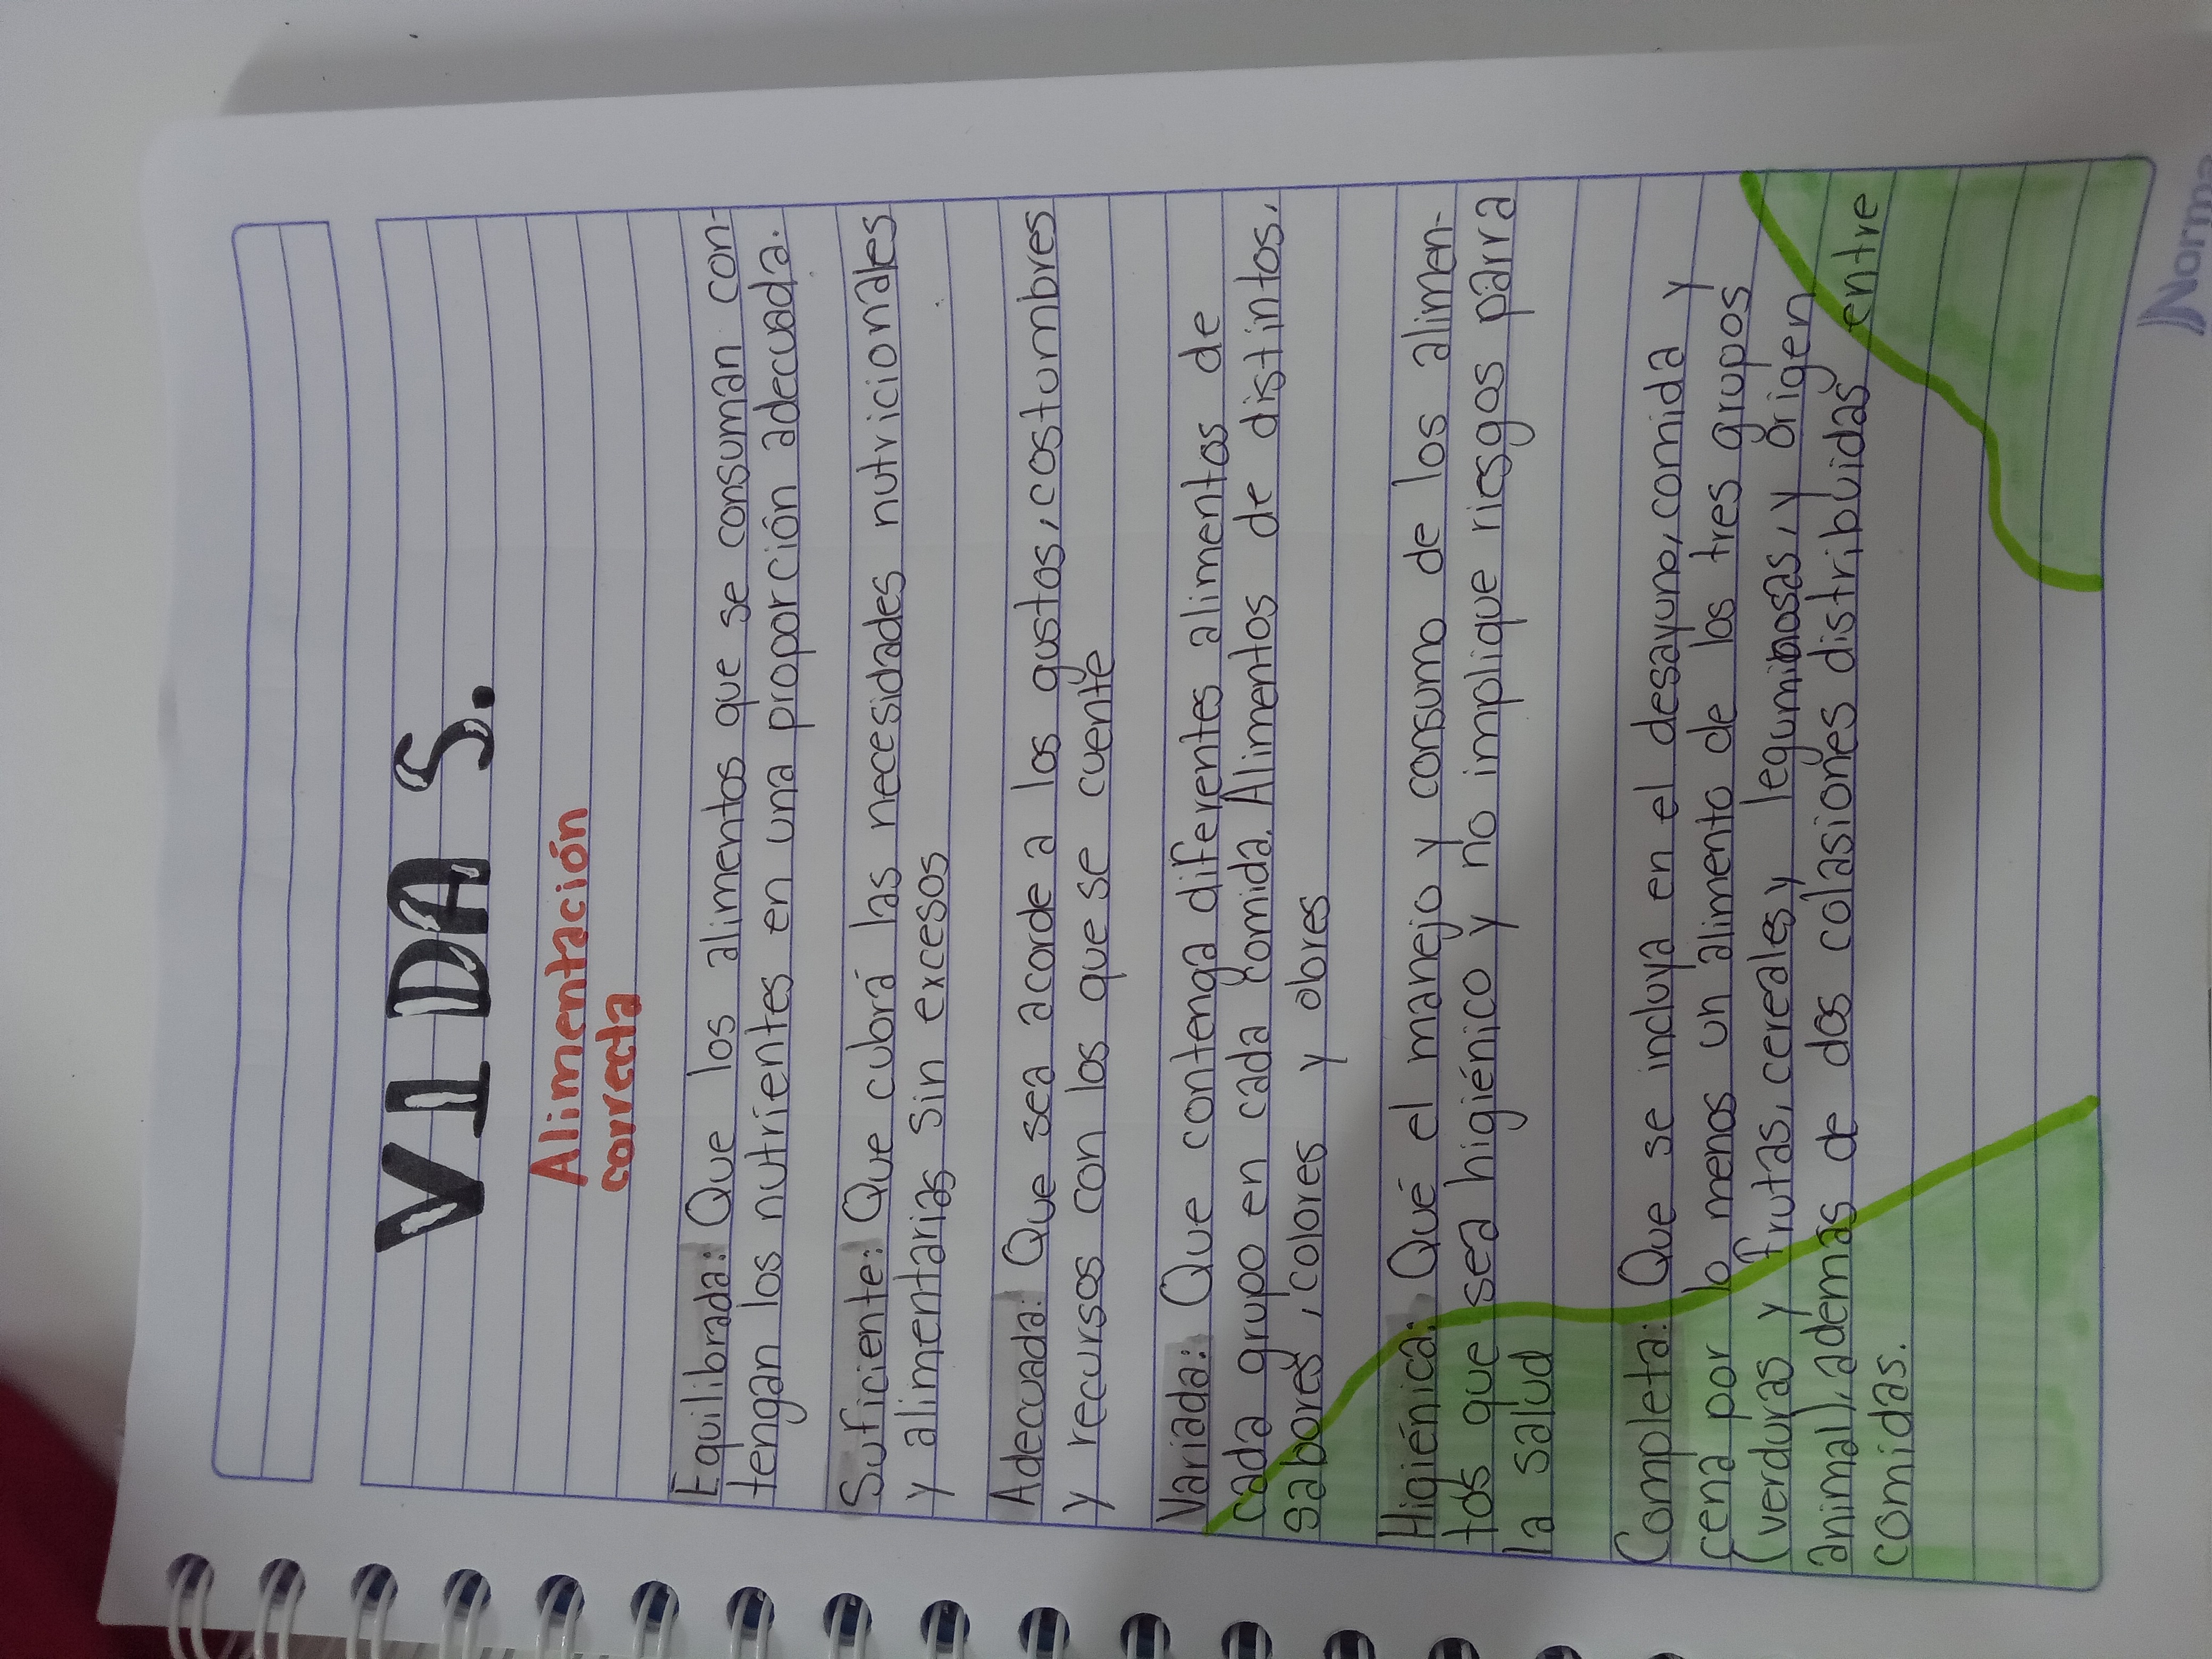 VIDA S.
Alimentación
correcta
Equilibrada: Que los alimentos que se consuman con-
tengan los nutrientes en una proporción adecuada.
Suficiente: Que cubrá las necesidades nutricionales
y alimentarias sin excesos
Adecuada: Que sea acorde a los gustos, costumbres
y recursos con los que se cuente
Variada: Que contenga diferentes alimentos de
cada grupo en cada comida. Alimentos de distintos,
sabores, colores y olores
Higiénica: Qué el manejo y consumo de los alimen-
tos que sea higiénico y no implique riesgos para
la salud
Completa: Que se incluya en el desayuno, comida y
cena por lo menos un alimento de los tres grupos
(verduras y frutas, cereales y leguminosas, y origen
animal), además de dos colasiones distribuidas entre
comidas.
Norma